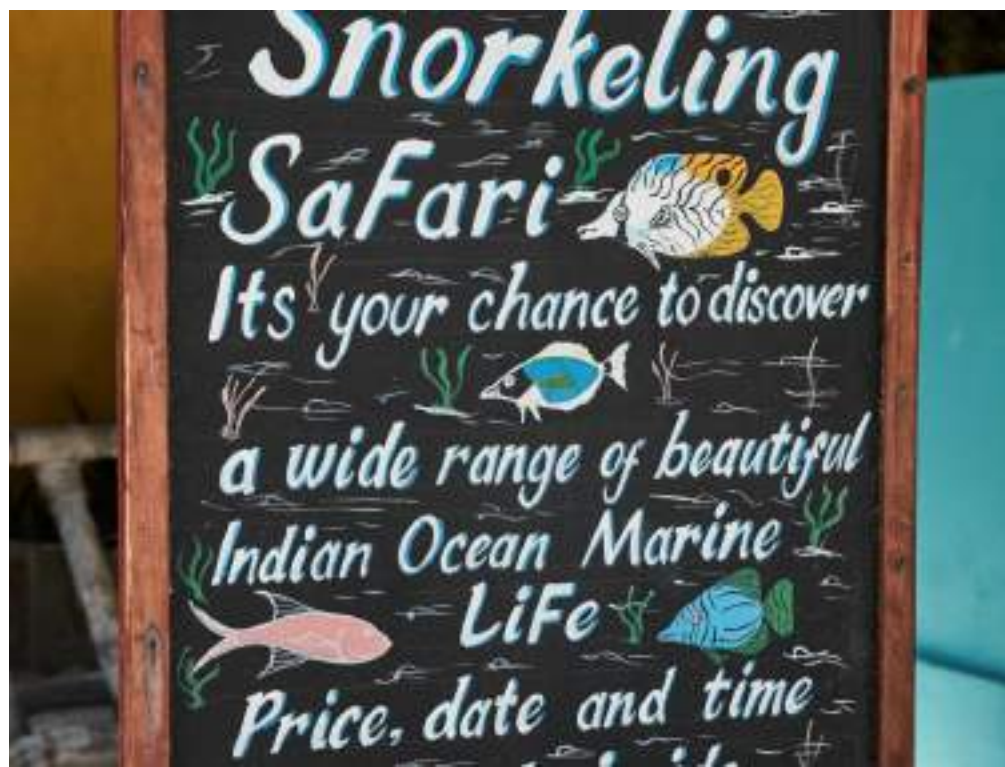 Snorkeling
SaFari
Its your chance to discover
a wide range of beautiful
Indian Ocean Marine
LiFe
Price, date and time